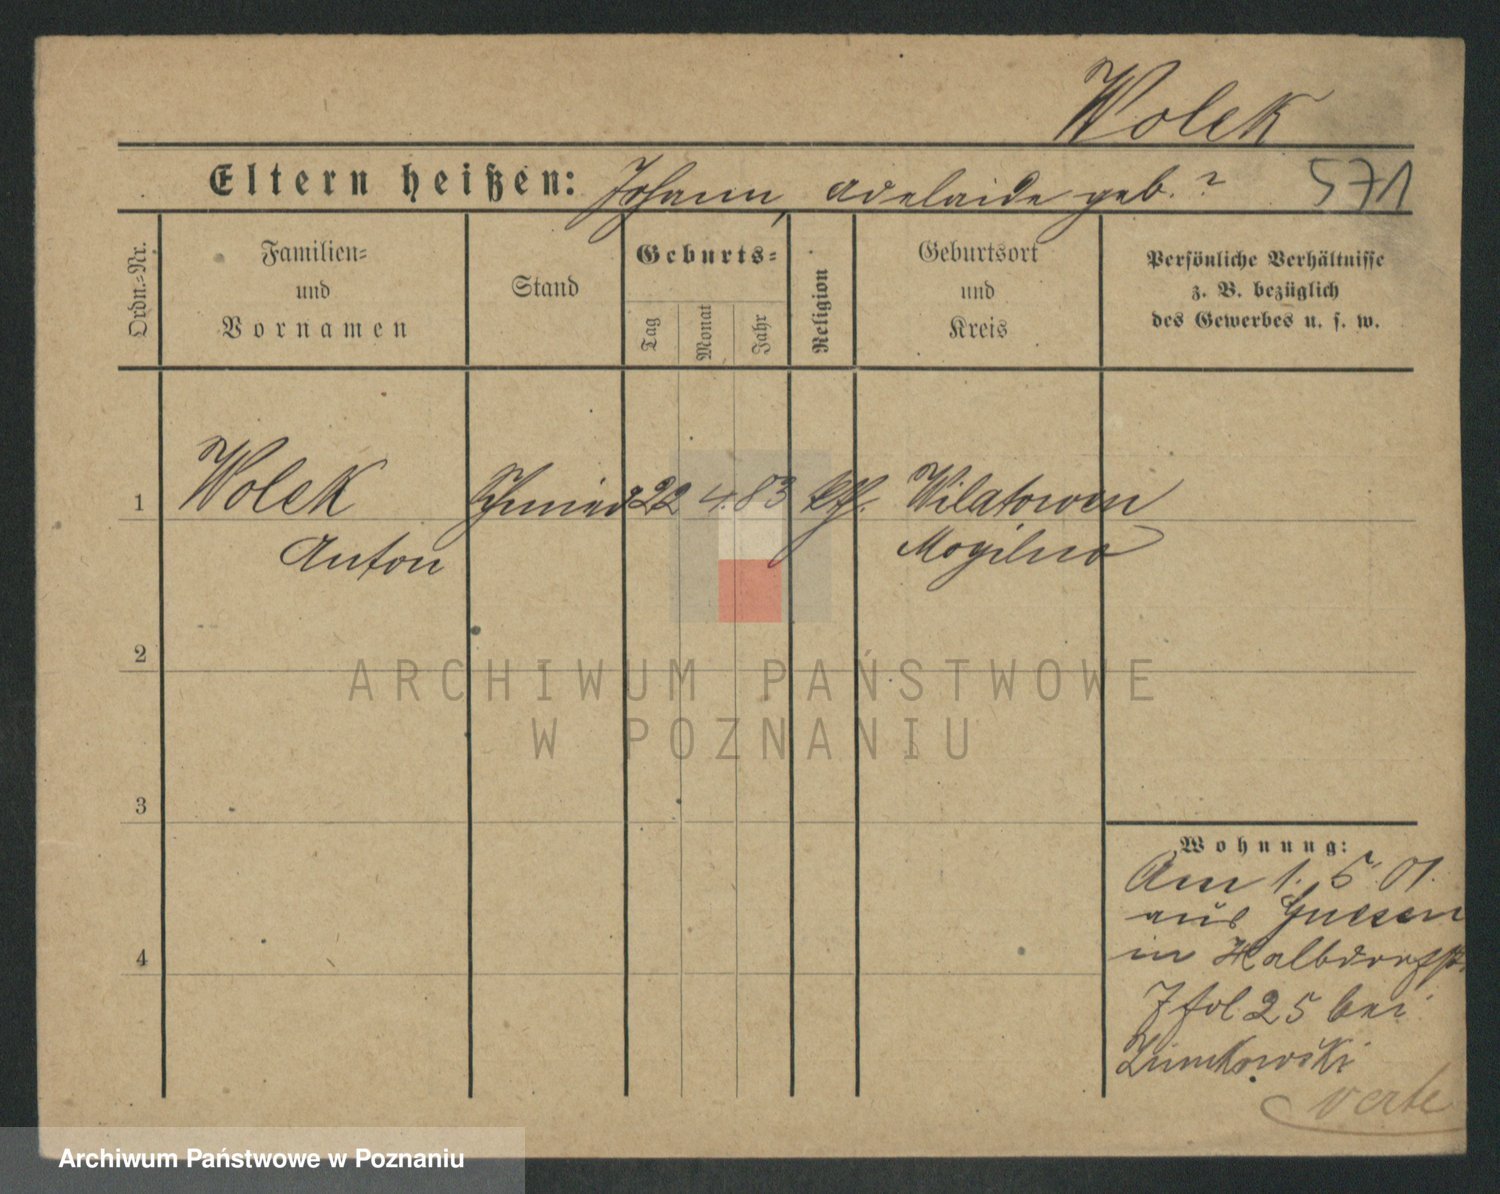 Wolek
Eltern heißen: Johann, Adelaide geb. ?
571
Ordn.-Nr.
Familien-
und
Vornamen
Stand
Geburts-
Tag
Monat
Jahr
Religion
Geburtsort
und
Kreis
Persönliche Verhältnisse
z. B. bezüglich
des Gewerbes u. s. w.
1
Wolek
Anton
Schmied
22
4.
83
kth.
Wilatowen
Mogilno
2
ARCHIWUM PAŃSTWOWE
W POZNANIU
3
4
Wohnung:
Am 1. 5. 01.
aus Gnesen
in Halbdorfstr.
7 fol 25 bei
verte
Archiwum Państwowe w Poznaniu